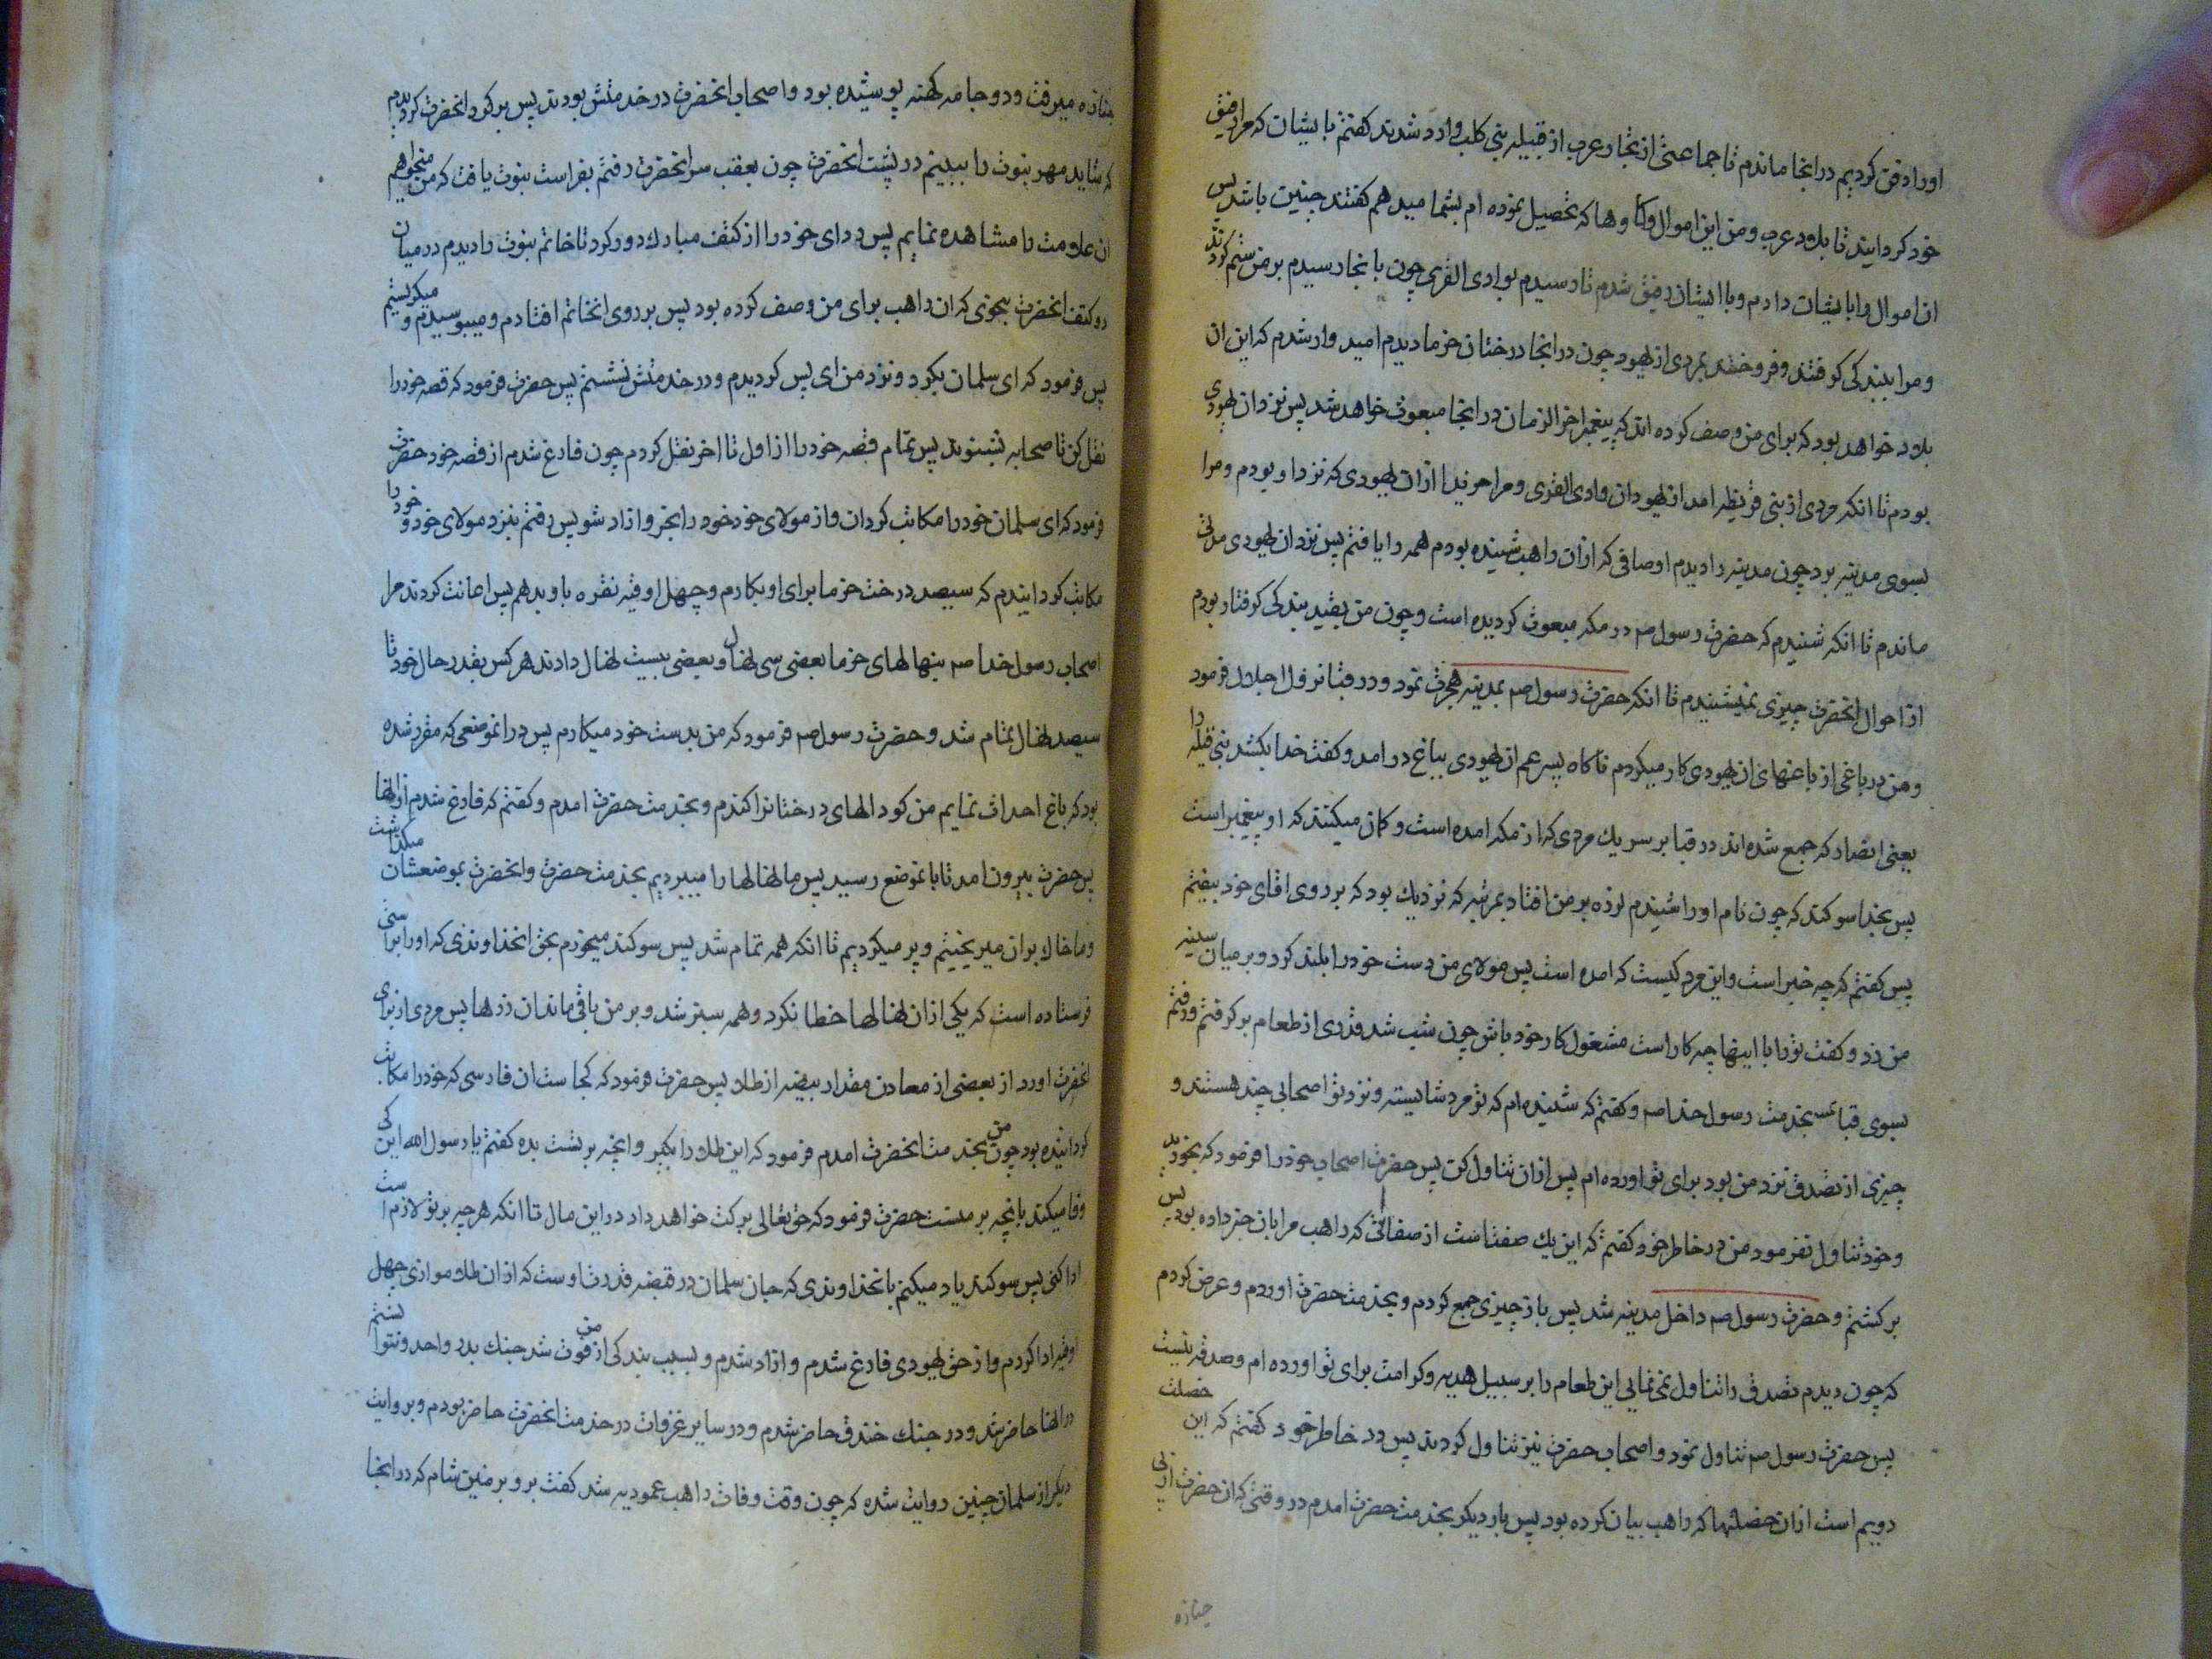 اورا دفن کردیم در انجا ماندم تا جماعتی از تجار عرب از قبیله بنی کلب وارد شدند کفتم بایشان که مرا رفیق
خود کردانید تا بلاد عرب و من این اموال و کاوها که تحصیل نموده ام بشما میدهم کفتند چنین باشد پس
ان اموال را بایشان دادم و با ایشان رفیق شدم تا رسیدم بوادی القری چون بانجا رسیدم بر من ستم کردند
و مرا ببندکی کرفتند و فروختند بمردی از یهود چون در انجا درختان خرما دیدم امید وار شدم که این ان
بلاد خواهد بود که برای من وصف کرده اند که پیغمبر اخر الزمان در انجا مبعوث خواهد شد پس نزد ان یهودی
بودم تا انکه مردی از بنی قریظه امد از یهودان وادی القری و مرا خرید از ان یهودی که نزد او بودم و مرا
بسوی مدینه برد چون مدینه را دیدم اوصافی که از ان راهب شنیده بودم همه را یافتم پس نزد ان یهودی مدتی
ماندم تا انکه شنیدم که حضرت رسول صم در مکه مبعوث کردیده است و چون من بقید بندکی کرفتار بودم
از احوال انحضرت چیزی نمیشنیدم تا انکه حضرت رسول صم بمدینه هجرت نمود و در قبا نزول اجلال فرمود
و من در باغی از باغهای ان یهودی کار میکردم ناکاه پسر عم ان یهودی بباغ در امد و کفت خدا بکشد بنی قیله را
یعنی انصار که جمع شده اند در قبا بر سر یك مردی که از مکه امده است و کمان میکنند که او پیغمبر است
پس بخدا سوکند که چون نام او را شنیدم لرزه بر من افتاد بمرتبه که نزدیك بود که بر روی اقای خود بیفتم
پس کفتم که چه خبر است و این مرد کیست که امده است پس مولای من دست خود را بلند کرد و بر میان سینه
من زد و کفت ترا با اینها چه کار است مشغول کار خود باش چون شب شد قدری از طعام بر کرفتم و رفتم
بسوی قبا بخدمت رسول خدا صم و کفتم که شنیده ام که تو مرد شایسته و نزد تو اصحابی چند هستند و
چیزی از تصدق نزد من بود برای تو اورده ام پس از ان تناول کن پس حضرت اصحاب خود را فرمود که بخورید
و خود تناول نفرمود من در خاطر خود کفتم که این یك صفت است از صفاتی که راهب مرا بان خبر داده بود پس
برکشتم و حضرت رسول صم داخل مدینه شد پس باز چیزی جمع کردم و بخدمت حضرت اوردم و عرض کردم
که چون دیدم تصدق را تناول نمی نمایی این طعام را بر سبیل هدیه و کرامت برای تو اورده ام و صدقه نیست
پس حضرت رسول صم تناول نمود و اصحاب حضرت نیز تناول کردند پس در خاطر خود کفتم که این خصلت
دویم است از ان خصلتها که راهب بیان کرده بود پس بار دیکر بخدمت حضرت امدم در وقتی که ان حضرت از پی
جنازه
جنازه میرفت و دو جامه کهنه پوشیده بود و اصحاب انحضرت در خدمتش بودند پس بر کرد انحضرت کردیدم
که شاید مهر نبوت را ببینم در پشت انحضرت چون بعقب سر انحضرت رفتم بفراست نبوت یافت که من میخواهم
ان علامت را مشاهده نمایم پس ردای خود را از کتف مبارك دور کرد تا خاتم نبوت را دیدم در میان
دو کتف انحضرت بنحوی که ان راهب برای من وصف کرده بود پس بر روی انخاتم افتادم و میبوسیدم و میکریستم
پس فرمود که ای سلمان بکرد و نزد من ای پس کردیدم و در خدمتش نشستم پس حضرت فرمود که قصه خود را
نقل کن تا صحابه بشنوند پس تمام قصه خود را از اول تا اخر نقل کردم چون فارغ شدم از قصه خود حضرت
فرمود که ای سلمان خود را مکاتب کردان و از مولای خود خود را بخر و ازاد شو پس رفتم بنزد مولای خود و خود را
مکاتب کردانیدم که سیصد درخت خرما برای او بکارم و چهل اوقیه نقره باو بدهم پس اعانت کردند مرا
اصحاب رسول خدا صم بنهالهای خرما بعضی سی نهال و بعضی بیست نهال دادند هر کس بقدر حال خود تا
سیصد نهال تمام شد و حضرت رسول صم فرمود که من بدست خود میکارم پس در انموضعی که مقرر شده
بود که باغ احداث نمایم من کودالهای درختانرا کندم و بخدمت حضرت امدم و کفتم که فارغ شدم از انها
پس حضرت بیرون امد تا بانموضع رسید پس ما نهالها را میبردیم بخدمت حضرت و انحضرت بموضعشان میکذاشت
و ما خاك بر ان میریختیم و پر میکردیم تا انکه همه تمام شد پس سوکند میخورم بحق انخداوندی که او را براستی
فرستاده است که یکی از ان نهالها خطا نکرد و همه سبز شد و بر من باقی ماند ان زرها پس مردی از برای
انحضرت اورد از بعضی از معادن مقدار بیضه از طلا پس حضرت فرمود که کجا است ان فارسی که خود را مکاتب
کردانیده بود چون من بخدمت انحضرت امدم فرمود که این طلا را بکیر و انچه بر تست بده کفتم یا رسول الله این کی
وفا میکند بانچه بر منست حضرت فرمود که حق تعالی برکت خواهد داد در این مال تا انکه هر چه بر تو لازم است
ادا کنی پس سوکند یاد میکنم بانخداوندی که جان سلمان در قبضه قدرت اوست که از ان طلا موازی چهل
اوقیه ادا کردم و از حق یهودی فارغ شدم و ازاد شدم و بسبب بندکی از من فوت شد جنك بدر و احد و نتوانستم
در انها حاضر شد و در جنك خندق حاضر شدم و در سایر غزوات در خدمت انحضرت حاضر بودم و بروایت
دیکر از سلمان چنین روایت شده که چون وقت وفات راهب عموریه شد کفت برو بزمین شام که در انجا